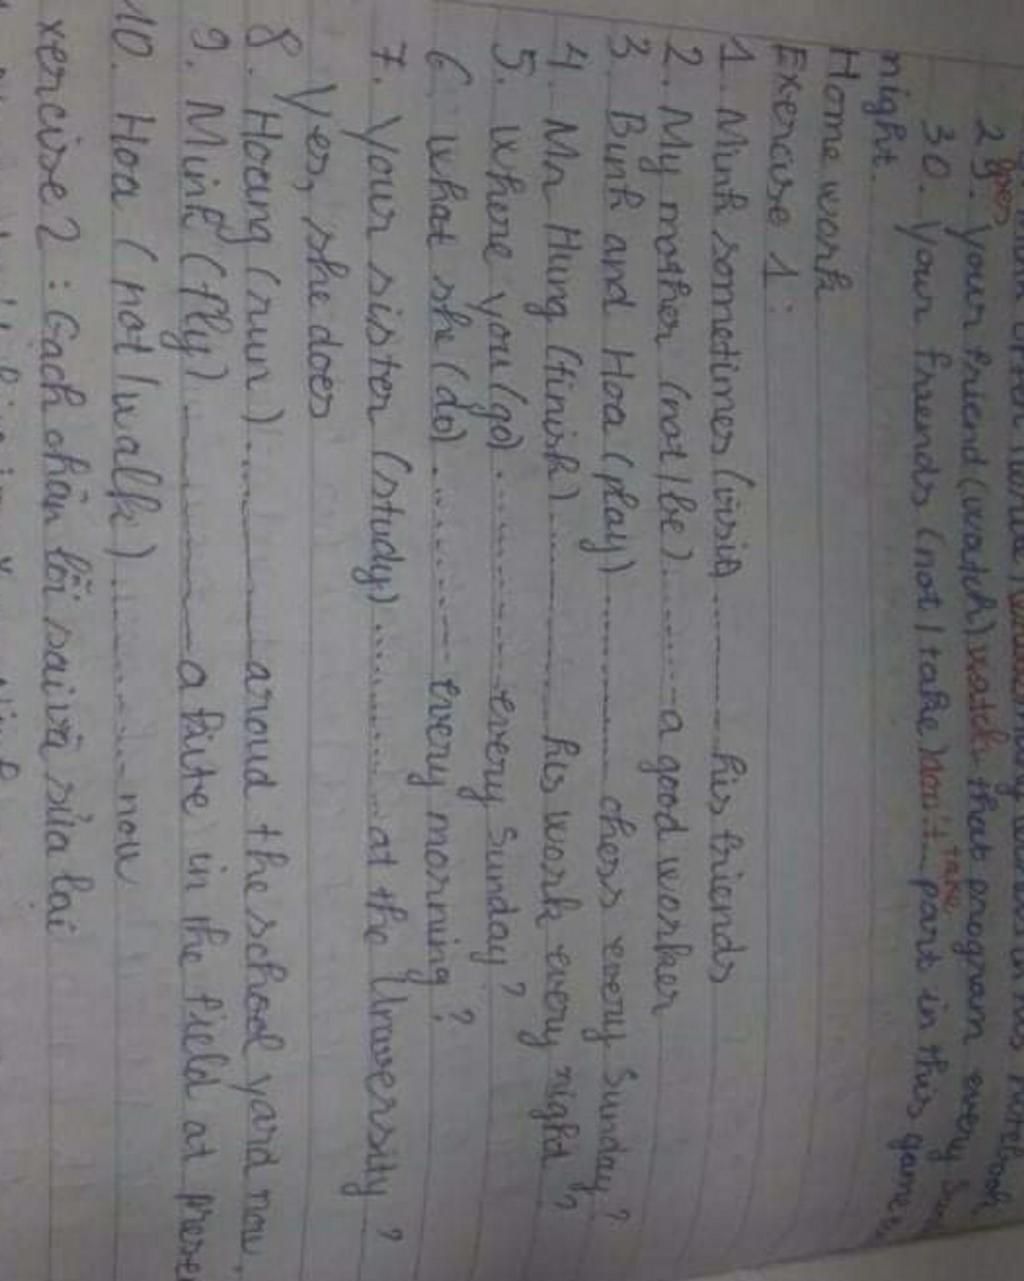 29. your friend (watch) watch that program every
goes
30. your friends (not / take) don't take part in this game
night.
Home work
Exercise 1:
1. Minh sometimes (visit) ........ his friends
2. My mother (not / be) ........ a good worker
3. Binh and Hoa (play) ........ chess every Sunday?
4. Mr Hung (finish) ........ his work every night?
5. Where you (go) ........ every Sunday?
6. What she (do) ........ every morning?
7. Your sister (study) ........ at the University?
Yes, she does
8. Hoang (run) ........ aroud the school yard now.
9. Minh (fly) ........ a kite in the field at prese
10. Hoa (not / walk) ........ now
xercise 2: Gạch chân lỗi sai và sửa lại